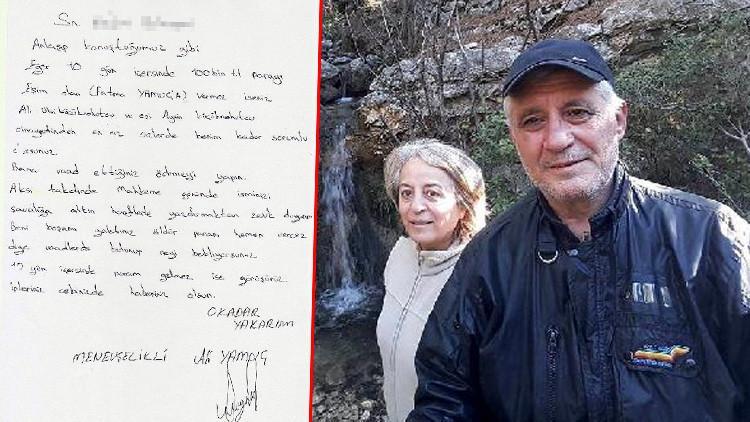 Sn.
Anlaşıp konuştuğumuz gibi
Eğer 10 gün içersinde 100 bin tl parayı
Eşim olan (Fatma YAMUÇ'A) vermez iseniz
Ali Ulvi Büyüknohutçu ve eşi Aysin Büyüknohutçu
cinayetinden en az sizlerde benim kadar sorumlu
Bana vaad ettiğiniz ödemeyi yapın.
Aksi takdirde Mahkeme gününde isminizi
savcılığa altın harflerle yazdırmaktan zevk duyarım
Beni başıma yaktınız öldür parayı hemen vercez
diye vaadlerde bulunup neyi bekliyorsunuz
15 gün içersinde param gelmez ise görüşürüz
ipleriniz cebinizde haberiniz olsun.
OKADAR
YAKARIM
MENEVŞELİKLİ Ali YAMUÇ